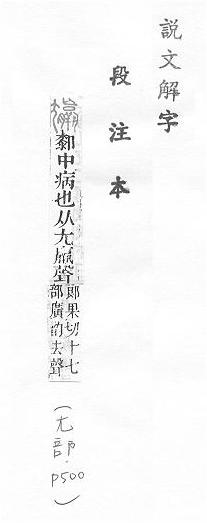 説文解字
段注本
厀中病也从尢𣎆聲
郎果切十七
部廣韵去聲
(尢部.P500)